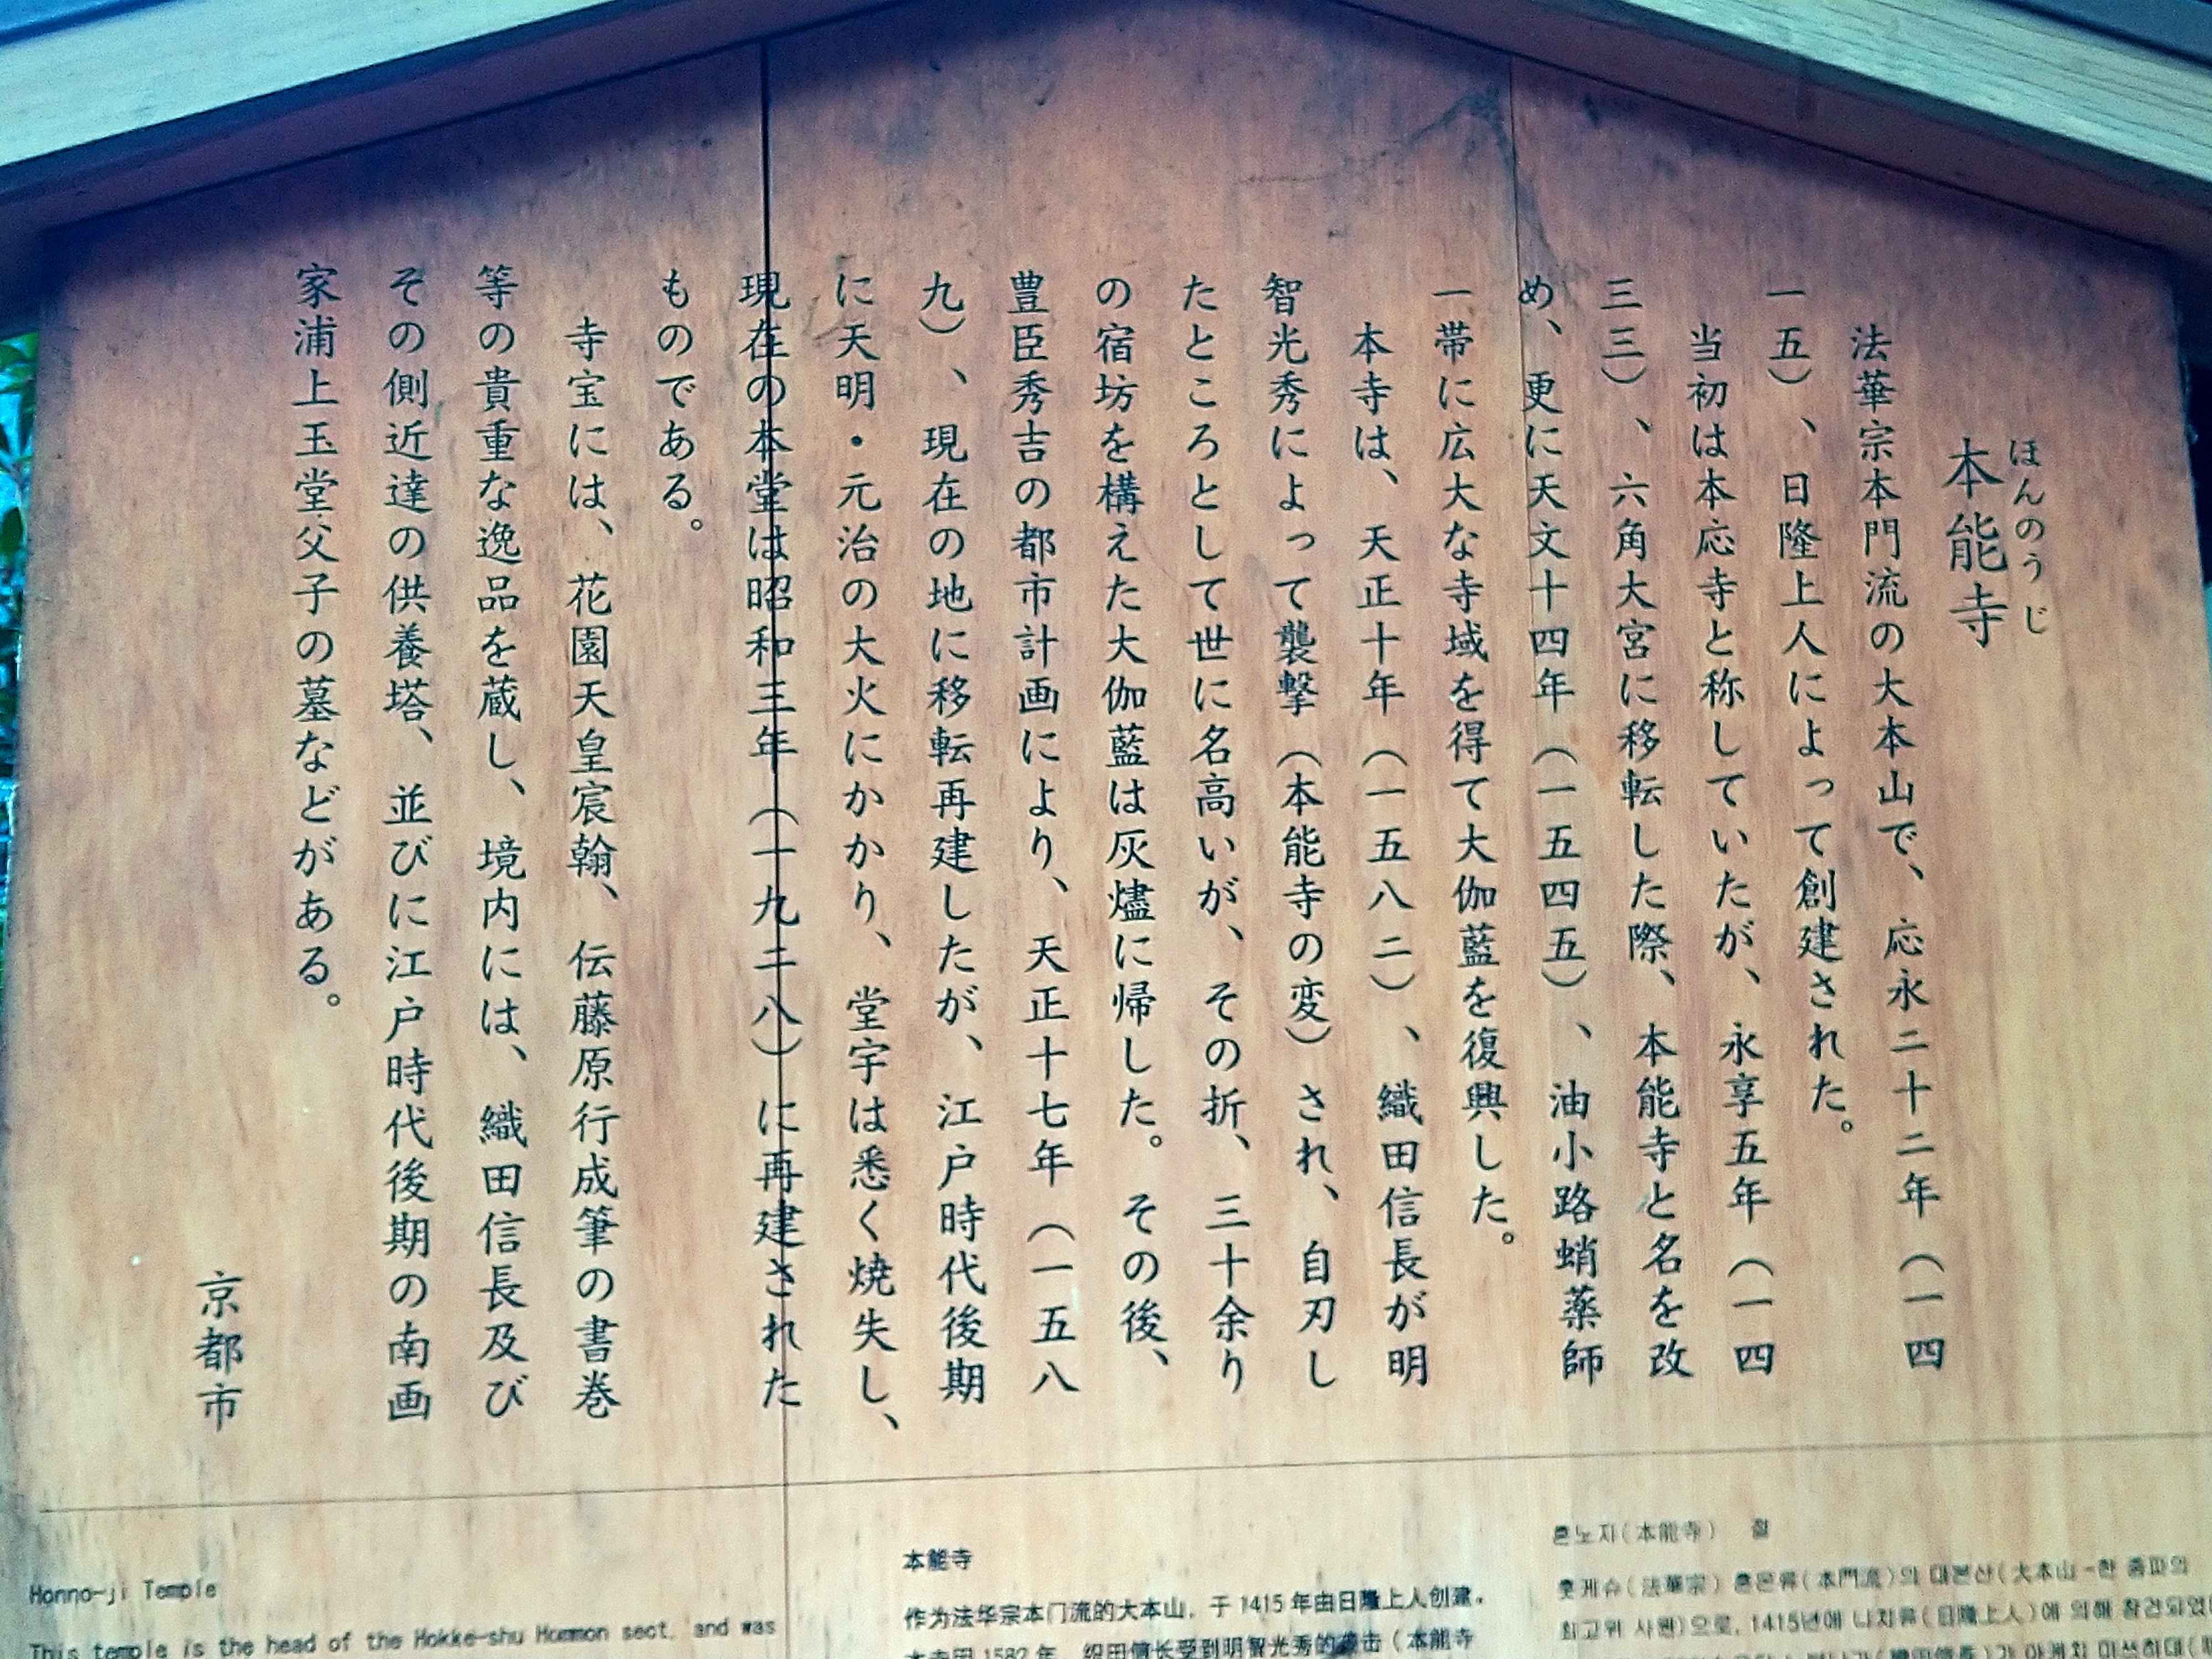 ほんのうじ
本能寺
法華宗本門流の大本山で、応永二十二年（一四
一五）、日隆上人によって創建された。
当初は本応寺と称していたが、永享五年（一四
三三）、六角大宮に移転した際、本能寺と名を改
め、更に天文十四年（一五四五）、油小路蛸薬師
一帯に広大な寺域を得て大伽藍を復興した。
本寺は、天正十年（一五八二）、織田信長が明
智光秀によって襲撃（本能寺の変）され、自刃し
たところとして世に名高いが、その折、三十余り
の宿坊を構えた大伽藍は灰燼に帰した。その後、
豊臣秀吉の都市計画により、天正十七年（一五八
九）、現在の地に移転再建したが、江戸時代後期
に天明・元治の大火にかかり、堂宇は悉く焼失し、
現在の本堂は昭和三年（一九二八）に再建された
ものである。
寺宝には、花園天皇宸翰、伝藤原行成筆の書巻
等の貴重な逸品を蔵し、境内には、織田信長及び
その側近達の供養塔、並びに江戸時代後期の南画
家浦上玉堂父子の墓などがある。
京都市
Honno-ji Temple
This temple is the head of the Hokke-shu Hommon sect, and was
本能寺
作为法华宗本门流的大本山，于1415年由日隆上人创建。
1582年，织田信长受到明智光秀的袭击（本能寺
혼노지(本能寺) 절
홋케슈(法華宗) 혼몬류(本門流)의 대본산(大本山-한 종파의
최고위 사원)으로, 1415년에 니치류(日隆上人)에 의해 창건되었